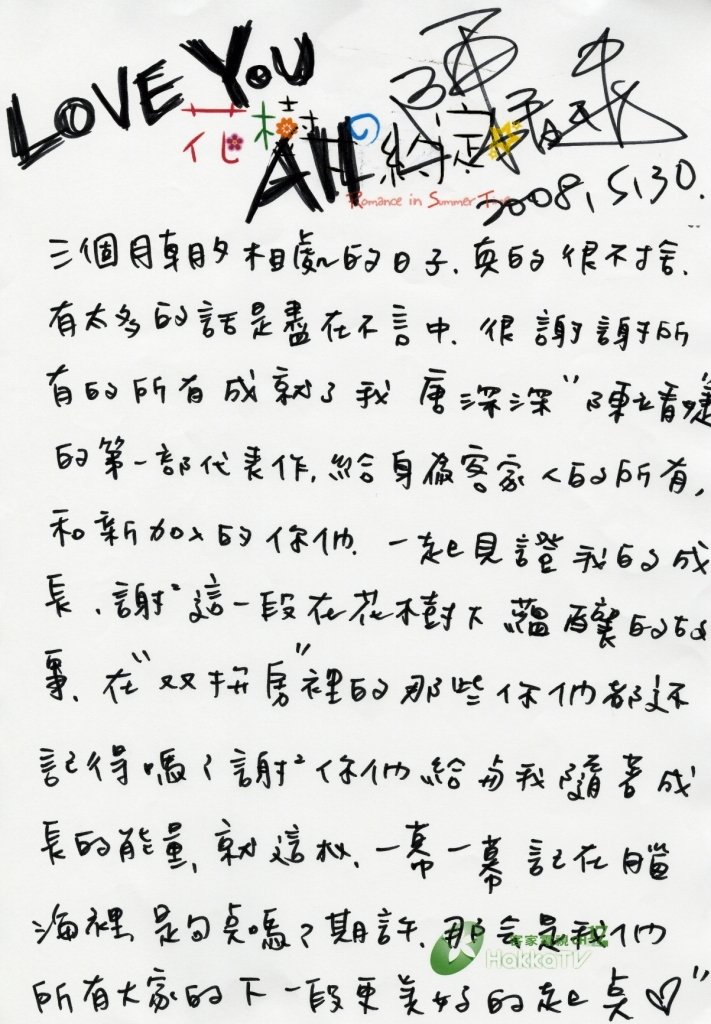 LOVE YOU
花樹の約定
AH
Romance in Summer Time
2008,5,30.
三個月朝夕相處的日子.真的很不捨.
有太多的話是盡在不言中.很謝謝所
有的所有成就了我 唐深深"陳
的第一部代表作.給身為客家人的所有,
和新加入的你們.一起見證我的成
長.謝²這一段在花樹下蘊釀的故
事.在"双拼房"裡的那些你們都還
記得嗎?謝²你們給与我隨著成
長的能量,就這樣.一幕一幕記在腦
海裡 是句点嗎?期許.那会是我們
所有大家的下一段更美好的起点♡"
客家電視
HakkaTV